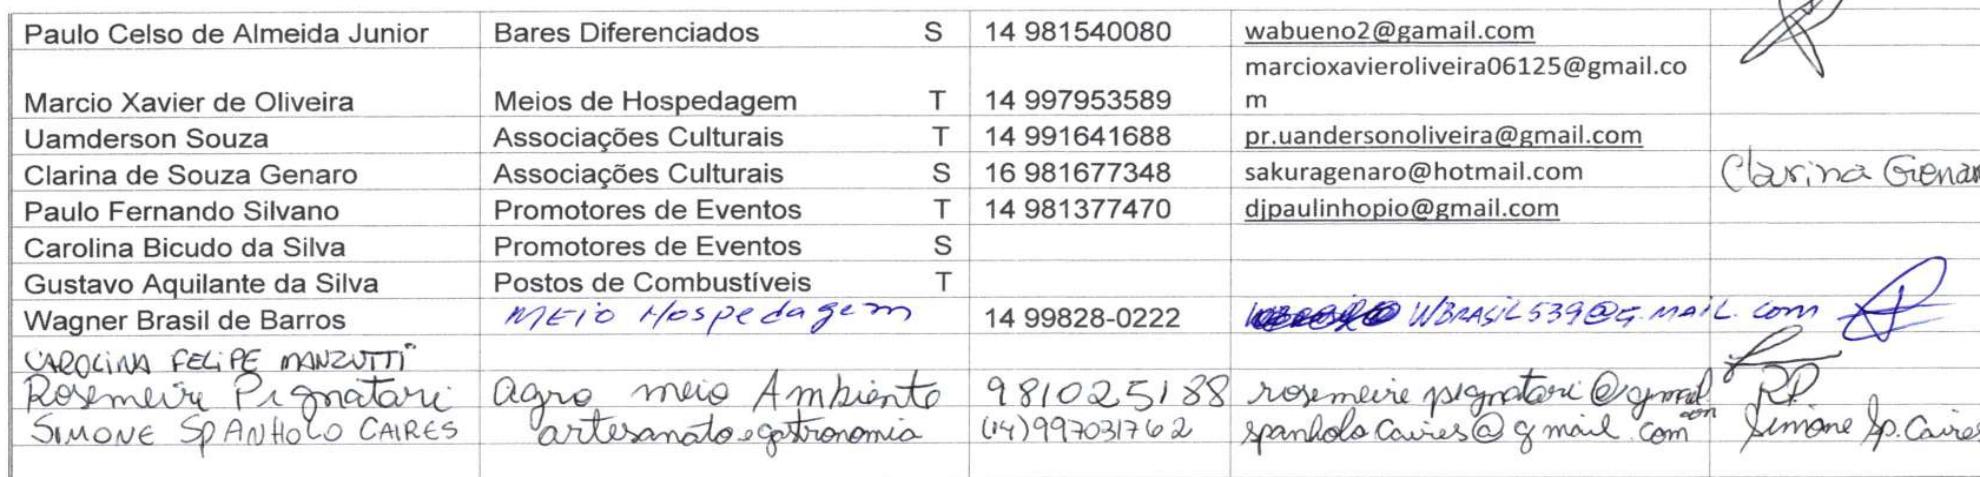 Paulo Celso de Almeida Junior Bares Diferenciados S 14 981540080 wabueno2@gamail.com
marcioxavieroliveira06125@gmail.co
Marcio Xavier de Oliveira Meios de Hospedagem T 14 997953589 m
Uamderson Souza Associações Culturais T 14 991641688 pr.uandersonoliveira@gmail.com
Clarina de Souza Genaro Associações Culturais S 16 981677348 sakuragenaro@hotmail.com Clarina
Paulo Fernando Silvano Promotores de Eventos T 14 981377470 djpaulinhopio@gmail.com
Carolina Bicudo da Silva Promotores de Eventos S
Gustavo Aquilante da Silva Postos de Combustíveis T
Wagner Brasil de Barros MEIO Hospedagem 14 99828-0222 WBRASIL539@G.MAIL.com
CAROLINA FELIPE MANZUTTI
Rosemeire Pignatari agro meio Ambiente 981025188 rosemeire pignatari@gmail com RP
SIMONE SPANHOLO CAIRES artesanato e gastronomia (14)997031762 spanholo caires@gmail.com Simone Sp. Caires